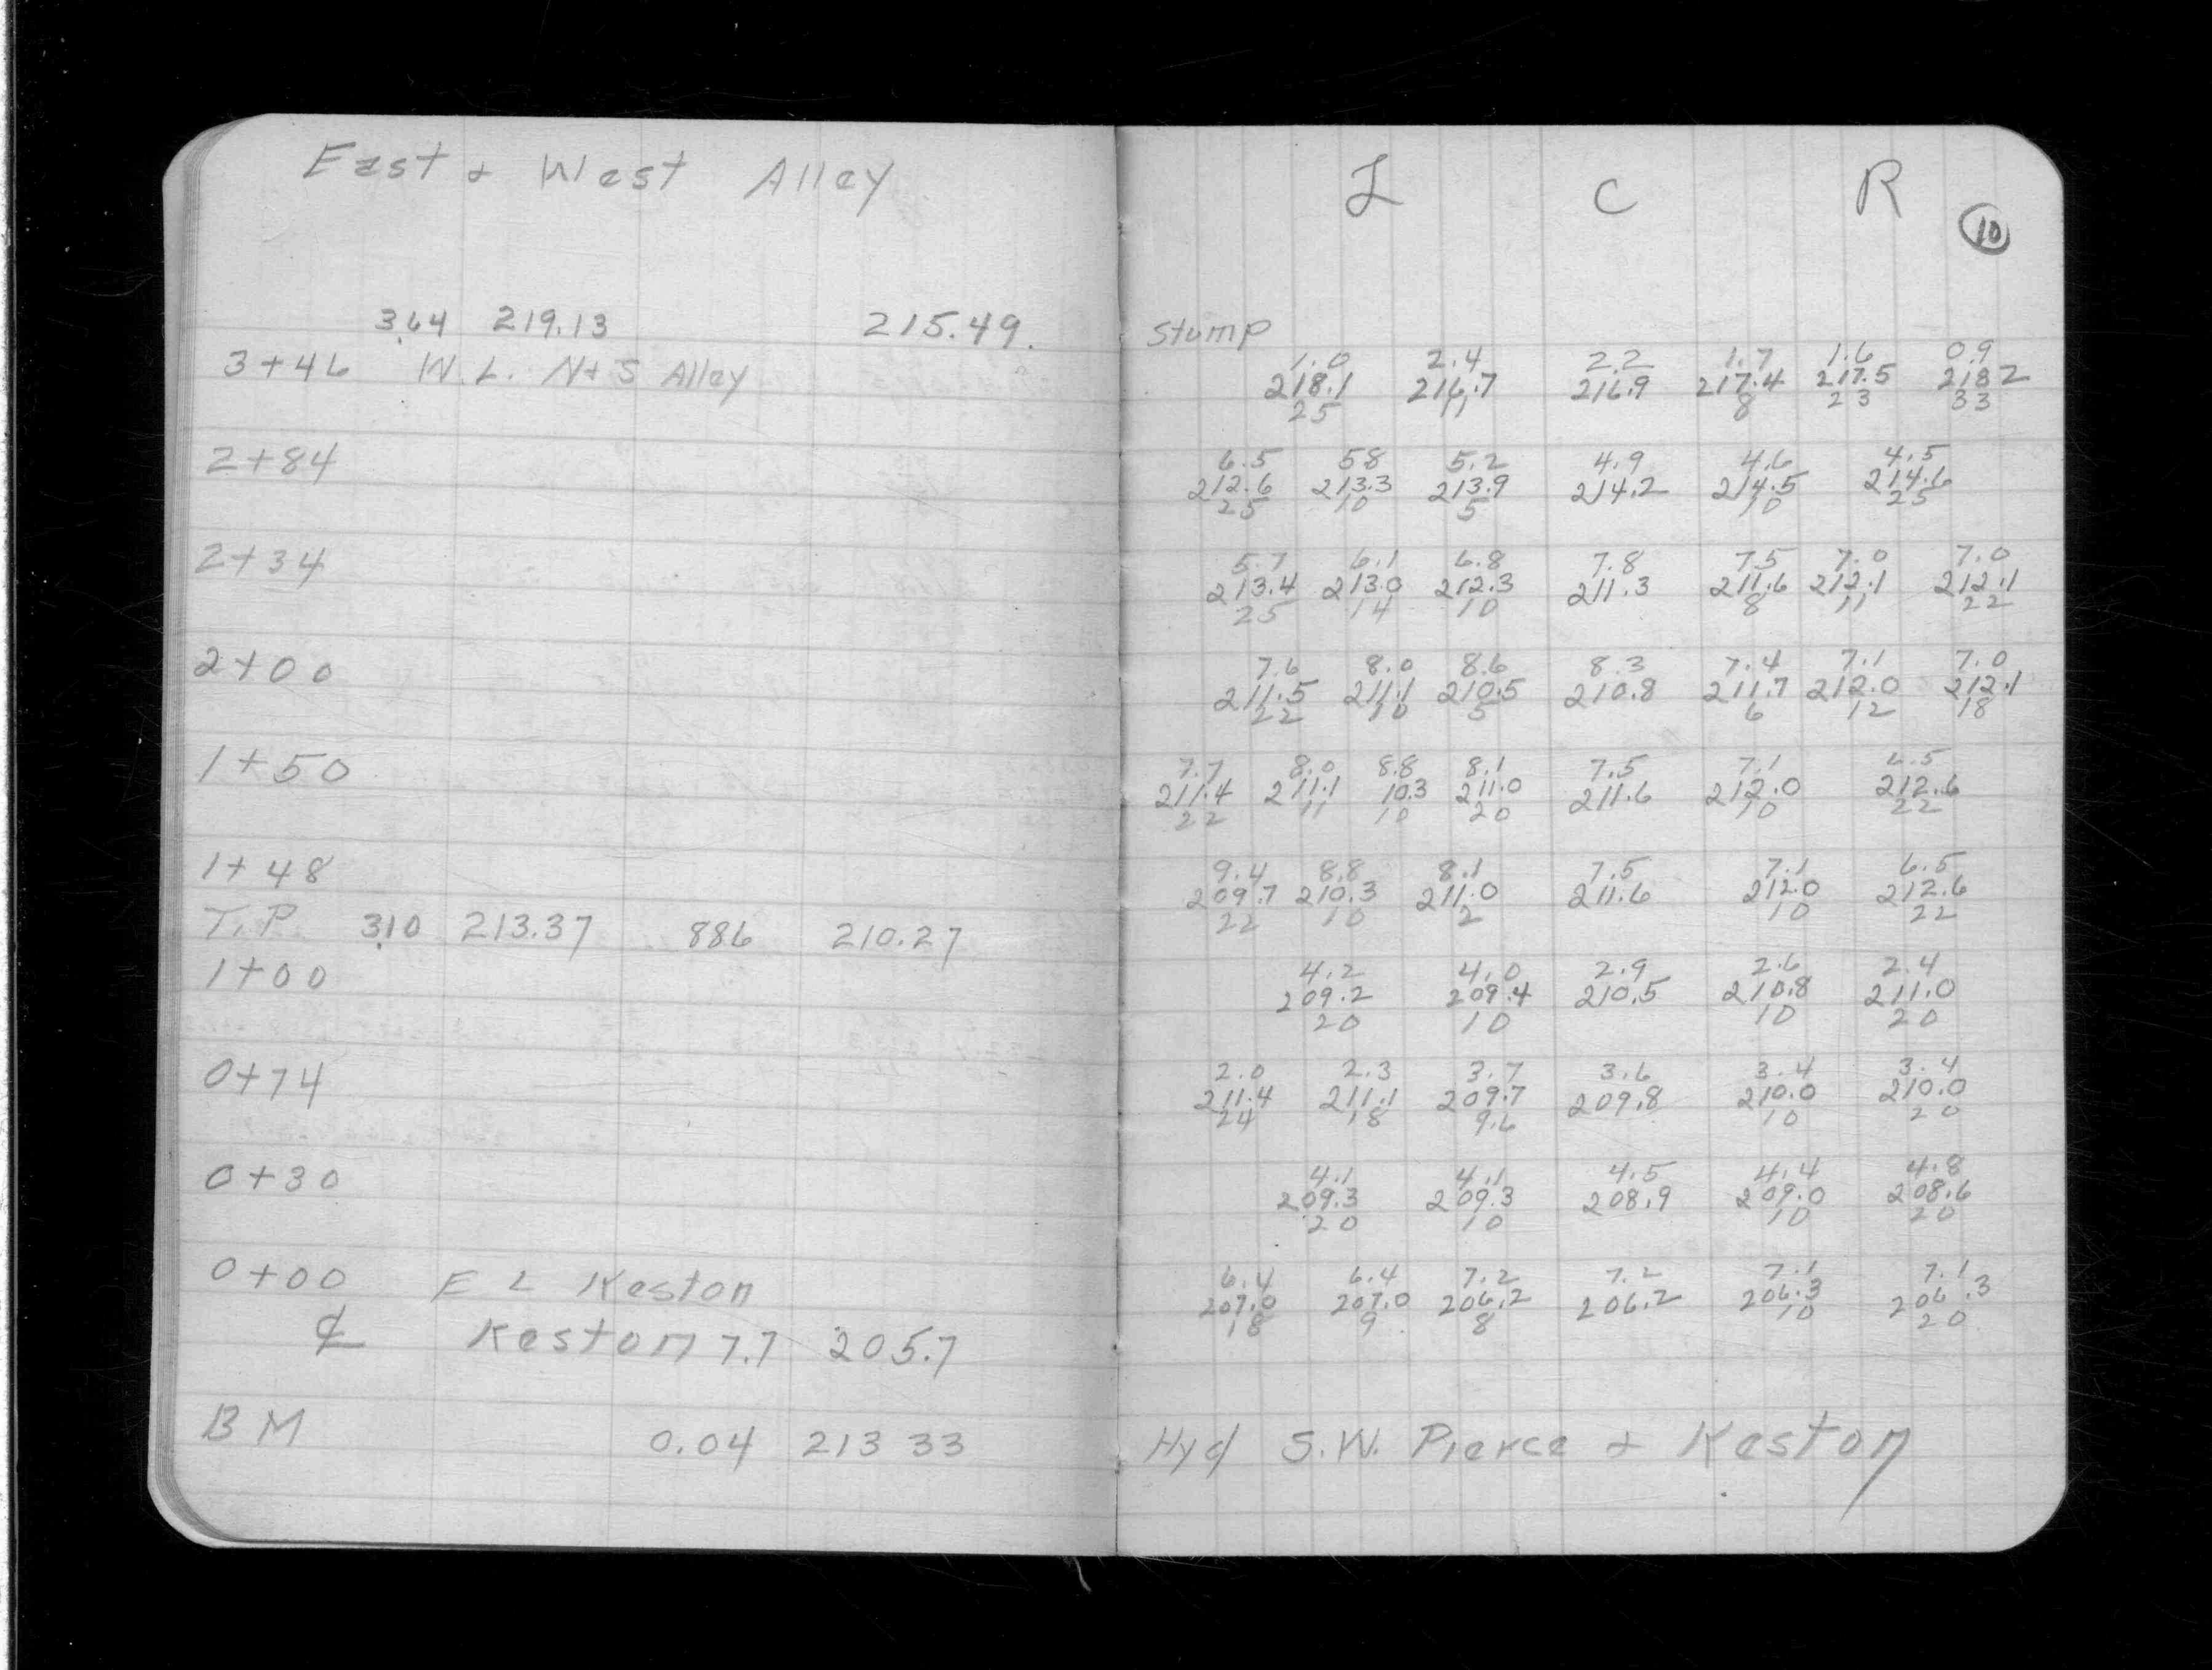 East & West Alley
3.64 219.13 215.49.
3+46 W.L. N+S Alley
2+84
2+34
2+00
1+50
1+48
T.P. 3.10 213.37 886 210.27
1+00
0+74
0+30
0+00 E L Keston
℄ Keston 7.7 205.7
BM 0.04 213 33
L C R
10
Stump
1.0 2.4 2.2 1.7 1.6 0.9
218.1 216.7 216.9 217.4 217.5 218 2
25 11 8 23 33
6.5 58 5.2 4.9 4.6 4.5
212.6 213.3 213.9 214.2 214.5 214.6
25 10 5 10 25
5.7 6.1 6.8 7.8 7.5 7.0 7.0
213.4 213.0 212.3 211.3 211.6 212.1 212.1
25 14 10 8 11 22
7.6 8.0 8.6 8.3 7.4 7.1 7.0
211.5 211.1 210.5 210.8 211.7 212.0 212.1
22 10 5 6 12 18
7.7 8.0 8.8 8.1 7.5 7.1 6.5
211.4 211.1 10.3 211.0 211.6 212.0 212.6
22 11 10 20 10 22
9.4 8.8 8.1 7.5 7.1 6.5
209.7 210.3 211.0 211.6 212.0 212.6
22 10 2 10 22
4.2 4.0 2.9 2.6 2.4
209.2 209.4 210.5 210.8 211.0
20 10 10 20
2.0 2.3 3.7 3.6 3.4 3.4
211.4 211.1 209.7 209.8 210.0 210.0
24 18 9.6 10 20
4.1 4.1 4.5 4.4 4.8
209.3 209.3 208.9 209.0 208.6
20 10 10 20
6.4 6.4 7.2 7.2 7.1 7.1
207.0 207.0 206.2 206.2 206.3 206.3
18 9 8 10 20
Hyd S.W. Pierce & Keston